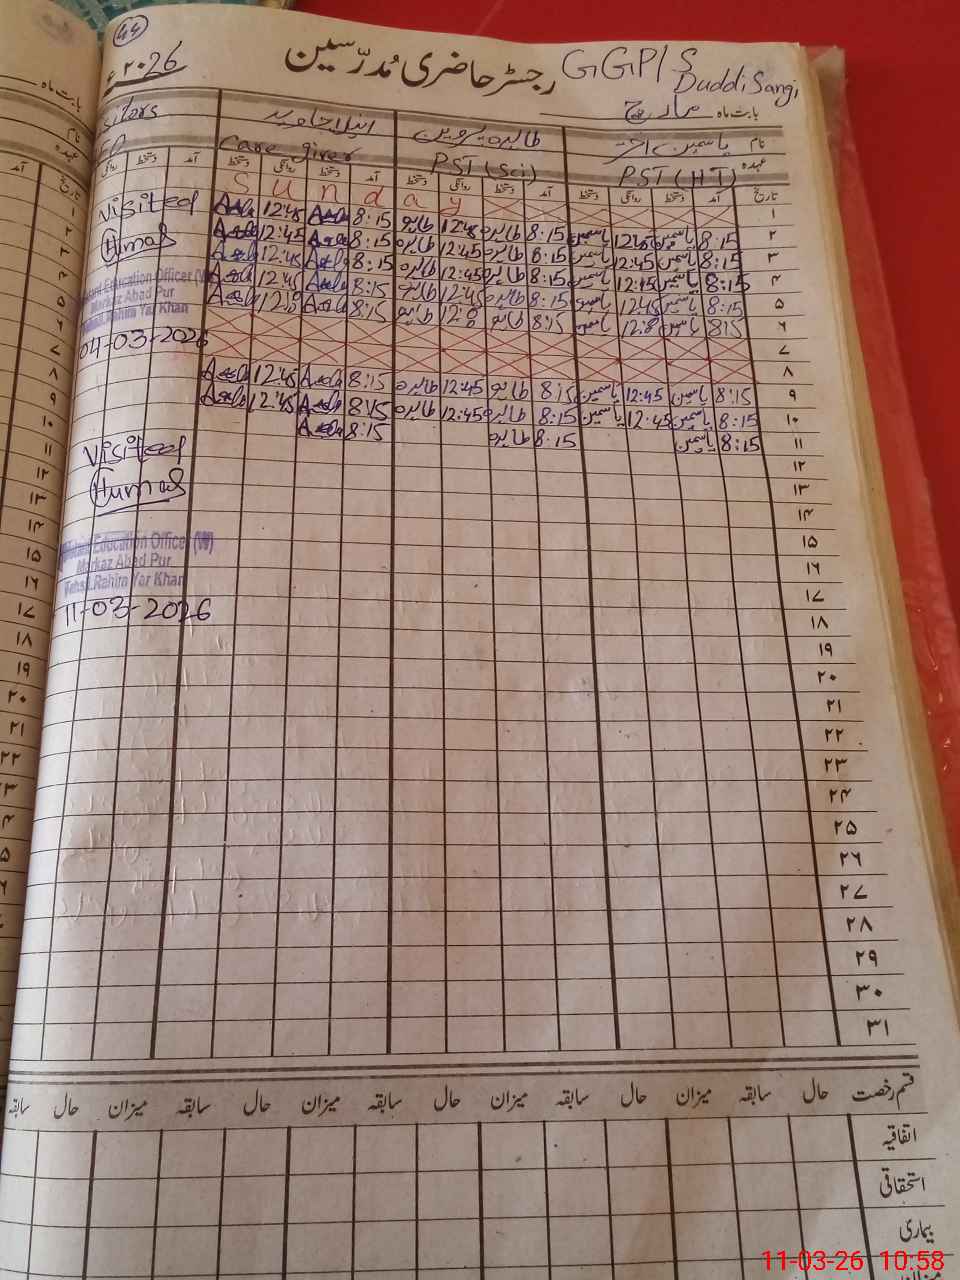 44
۲۰26ء
رجسٹر حاضری مُدرّسین
GGP/S
Duddi Sangi
بابت ماہ مارچ
نام یاسمین اختر
طاہرہ پروین
عہدہ PST (HT)
PST (Sci)
Care giver
تاریخ آمد دستخط روانگی دستخط آمد دستخط روانگی دستخط آمد دستخط روانگی دستخط آمد دستخط روانگی
۱ S u n d a y
۲ 8:15 یاسمین 12:45 یاسمین 8:15 طاہرہ 12:45 طاہرہ 8:15 12:45
۳ 8:15 یاسمین 12:45 یاسمین 8:15 طاہرہ 12:45 طاہرہ 8:15 12:45
۴ 8:15 یاسمین 12:45 یاسمین 8:15 طاہرہ 12:45 طاہرہ 8:15 12:45
۵ 8:15 یاسمین 12:45 یاسمین 8:15 طاہرہ 12:45 طاہرہ 8:15 12:45
۶ 8:15 یاسمین یاسمین 8:15 طاہرہ طاہرہ 8:15
۷
۸
۹ 8:15 یاسمین 12:45 یاسمین 8:15 طاہرہ 12:45 طاہرہ 8:15 12:45
۱۰ 8:15 یاسمین 12:45 یاسمین 8:15 طاہرہ 12:45 طاہرہ 8:15 12:45
۱۱ 8:15 یاسمین 8:15 طاہرہ 8:15
۱۲
۱۳
۱۴
۱۵
۱۶
۱۷
۱۸
۱۹
۲۰
۲۱
۲۲
۲۳
۲۴
۲۵
۲۶
۲۷
۲۸
۲۹
۳۰
۳۱
Visited
Education Officer (W)
Markaz Abad Pur
Rahim Yar Khan
04-03-2026
Visited
Humas
Education Officer (W)
Markaz Abad Pur
Tehsil Rahim Yar Khan
11-03-2026
قسم رخصت حال سابقہ میزان حال سابقہ میزان حال سابقہ میزان حال سابقہ میزان حال سابقہ
اتفاقیہ
استحقاقی
بیماری
میزان
11-03-26 10:58